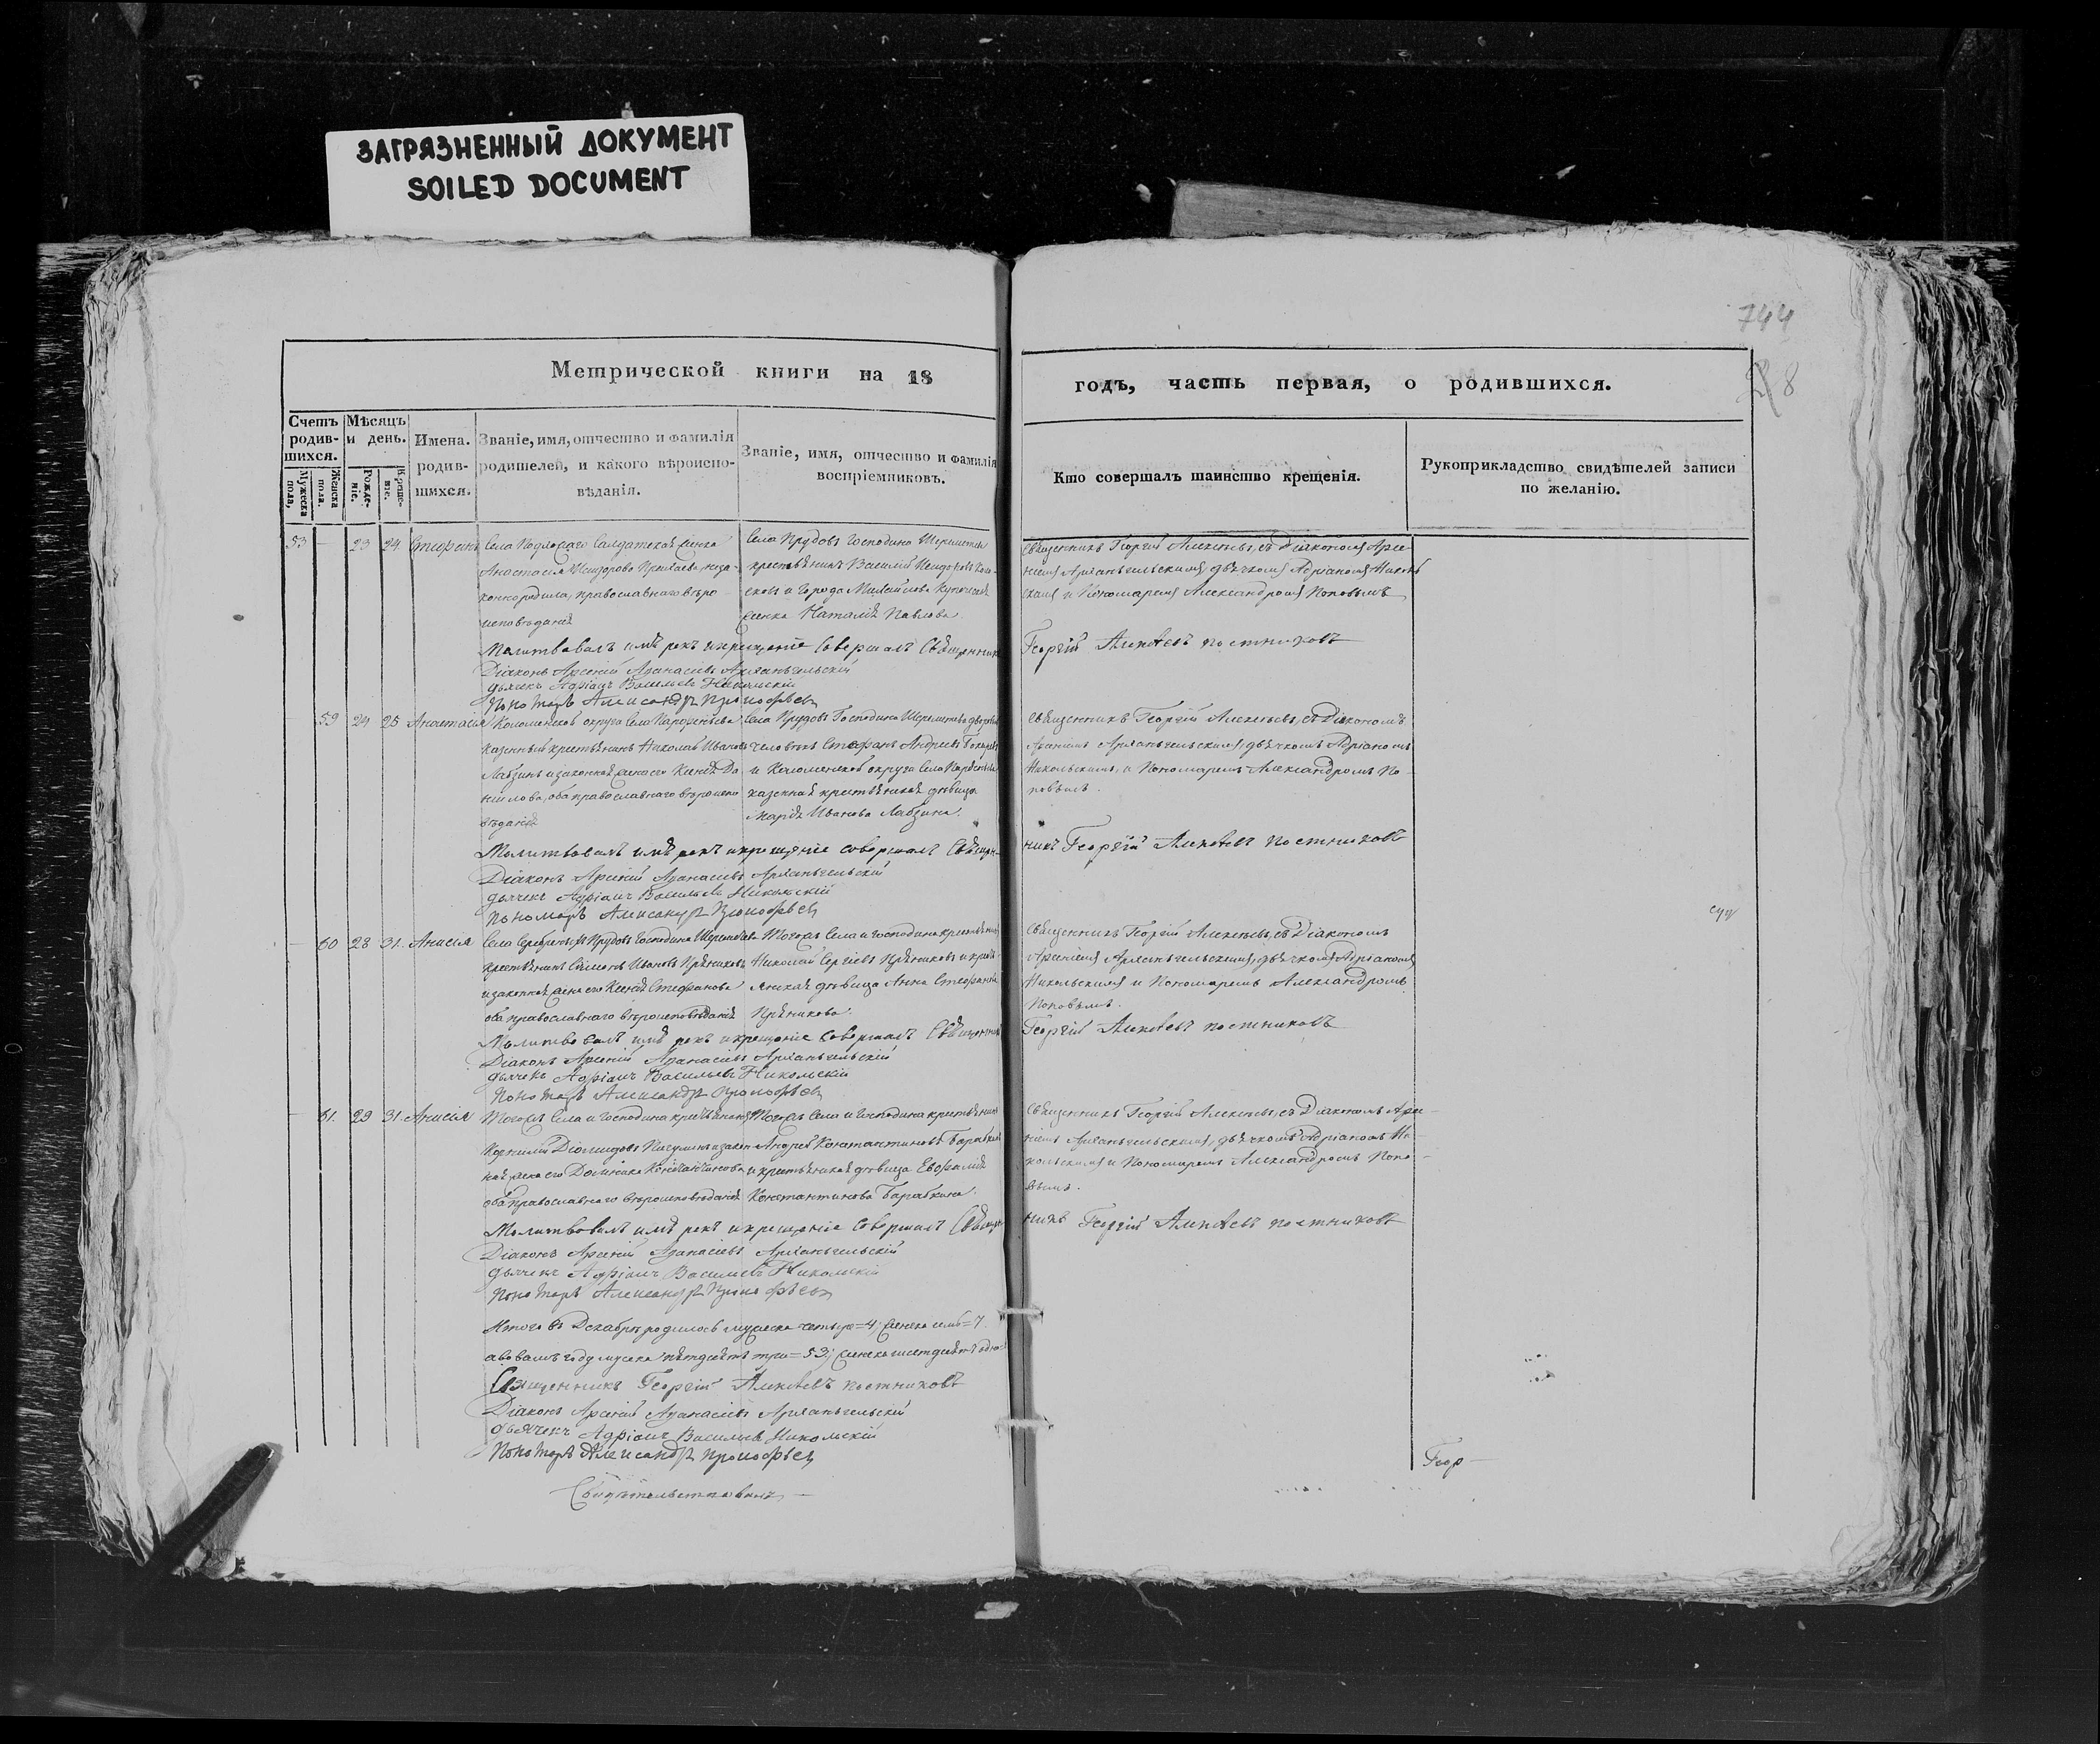 ЗАГРЯЗНЕННЫЙ ДОКУМЕНТ
SOILED DOCUMENT
744
8
Метрической книги на 18
годъ, часть первая, о родившихся.
Счетъ родив-шихся.
Мѣсяцъ и день.
Имена. родив-шихся.
Званіе, имя, отчество и фамилія родителей, и какого вѣроиспо-вѣданія.
Званіе, имя, отчество и фамилія воспріемниковъ.
Кто совершалъ таинство крещенія.
Рукоприкладство свидѣтелей записи по желанію.
Мужеска пола,
Женска пола.
Рожде-ніе.
Креще-ніе.
53 — 23 24 Стефанъ
Села Прудовъ Господина Шереметева
крестьянинъ Василій
православнаго вѣро-
исповѣданія
и Города
Наталія Павлова
Священникъ Георгій Алексѣевъ, съ Діакономъ Арсе-
ніемъ Архангельскимъ, дьячкомъ Адріаномъ Николь
скимъ и Пономаремъ Александромъ Поповымъ
Молитвовалъ имя рекъ и крещеніе совершалъ Священникъ
Георгій Алексѣевъ Постниковъ
Діаконъ Арсеній Афанасіевъ Архангельскій
дьячекъ Адріанъ Васильевъ Никольскій
Пономарь Александръ Прокофьевъ
59 24 25 Анастасія
Коломенской округи села
Села Прудовъ Господина Шереметева
казенный крестьянинъ Николай Ивановъ
человѣкъ Стефанъ Андреевъ
Лабзинъ и законная жена его Ксенія Да
и Коломенской округи села
нилова, оба православнаго вѣроиспо
казенная крестьянская дѣвица
вѣданія
Марія Иванова Лабзина.
Священникъ Георгій Алексѣевъ, съ Діакономъ
Архангельскимъ, дьячкомъ Адріаномъ
Никольскимъ, и Пономаремъ Александромъ По
повымъ.
Молитвовалъ имя рекъ и крещеніе совершалъ Священ-
никъ Георгій Алексѣевъ Постниковъ
Діаконъ Арсеній Афанасіевъ Архангельскій
дьячекъ Адріанъ Васильевъ Никольскій
Пономарь Александръ Прокофьевъ
60 28 31. Анисія
Села Прудовъ Господина Шереметева
Тогожъ Села и Господина крестьянинъ
крестьянинъ Симеонъ Ивановъ Пряниковъ
Николай Сергіевъ Пряниковъ и кресть-
и законная жена его Ксенія Стефанова
янская дѣвица Анна Стефанова
оба православнаго вѣроисповѣданія
Пряникова.
Священникъ Георгій Алексѣевъ, съ Діакономъ
Арсеніемъ Архангельскимъ, дьячкомъ Адріаномъ
Никольскимъ и Пономаремъ Александромъ
Поповымъ.
Молитвовалъ имя рекъ и крещеніе совершалъ Священникъ
Георгій Алексѣевъ Постниковъ
Діаконъ Арсеній Афанасіевъ Архангельскій
дьячекъ Адріанъ Васильевъ Никольскій
Пономарь Александръ Прокофьевъ
61. 29 31. Анисія
Тогожъ Села и Господина крестьянинъ
Тогожъ Села и Господина крестьянинъ
Корнилій Діомидовъ
Андрей Константиновъ
ная жена его Домника Константинова
и крестьянская дѣвица Евфимія
оба православнаго вѣроисповѣданія
Константинова Барабкина.
Священникъ Георгій Алексѣевъ, съ Діакономъ Арсе-
ніемъ Архангельскимъ, дьячкомъ Адріаномъ Ни-
кольскимъ и Пономаремъ Александромъ Попо-
вымъ.
Молитвовалъ имя рекъ и крещеніе совершалъ Священ-
никъ Георгій Алексѣевъ Постниковъ
Діаконъ Арсеній Афанасіевъ Архангельскій
дьячекъ Адріанъ Васильевъ Никольскій
Пономарь Александръ Прокофьевъ
Итого въ Декабрѣ родилось мужеска четыре=4; женска семь=7.
году мужска пятдесятъ три=53; женска шестдесятъ одна
Священникъ Георгій Алексѣевъ Постниковъ
Діаконъ Арсеній Афанасіевъ Архангельскій
дьячекъ Адріанъ Васильевъ Никольскій
Пономарь Александръ Прокофьевъ
Геор—